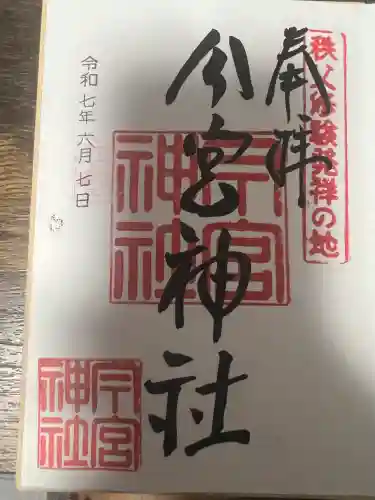 秩父修験発祥の地
奉拝
今宮神社
今宮神社
今宮神社
令和七年六月七日